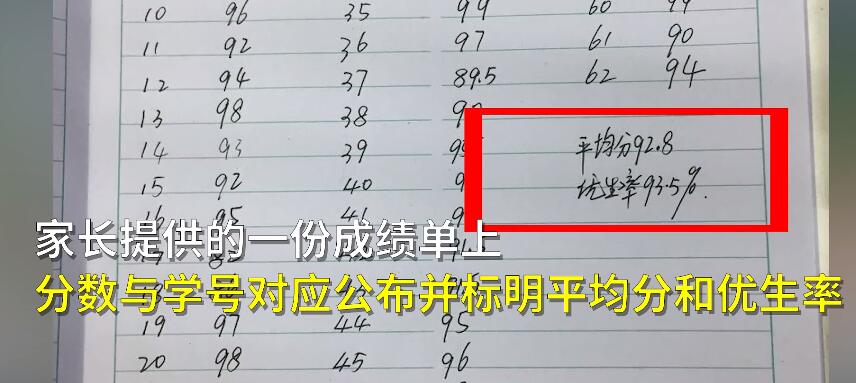 10 96 35 99 60 99
11 92 36 97 61 90
12 94 37 89.5 62 94
13 98 38
14 93 39
平均分92.8
15 92 40
优生率93.5%.
16 95 41
家长提供的一份成绩单上
分数与学号对应公布并标明平均分和优生率
19 97 44 95
20 98 45 96